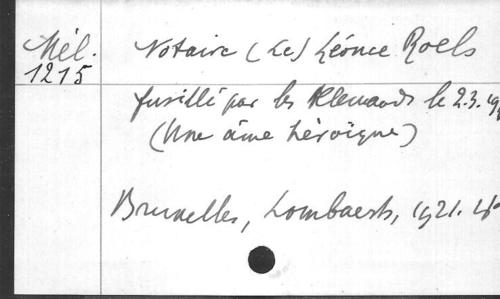 Mél.
1215
Notaire (Le) Léonce Roels
fusillé par les Allemands le 2.3.
(Une âme héroïque)
Bruxelles, Lombaerts, 1921.